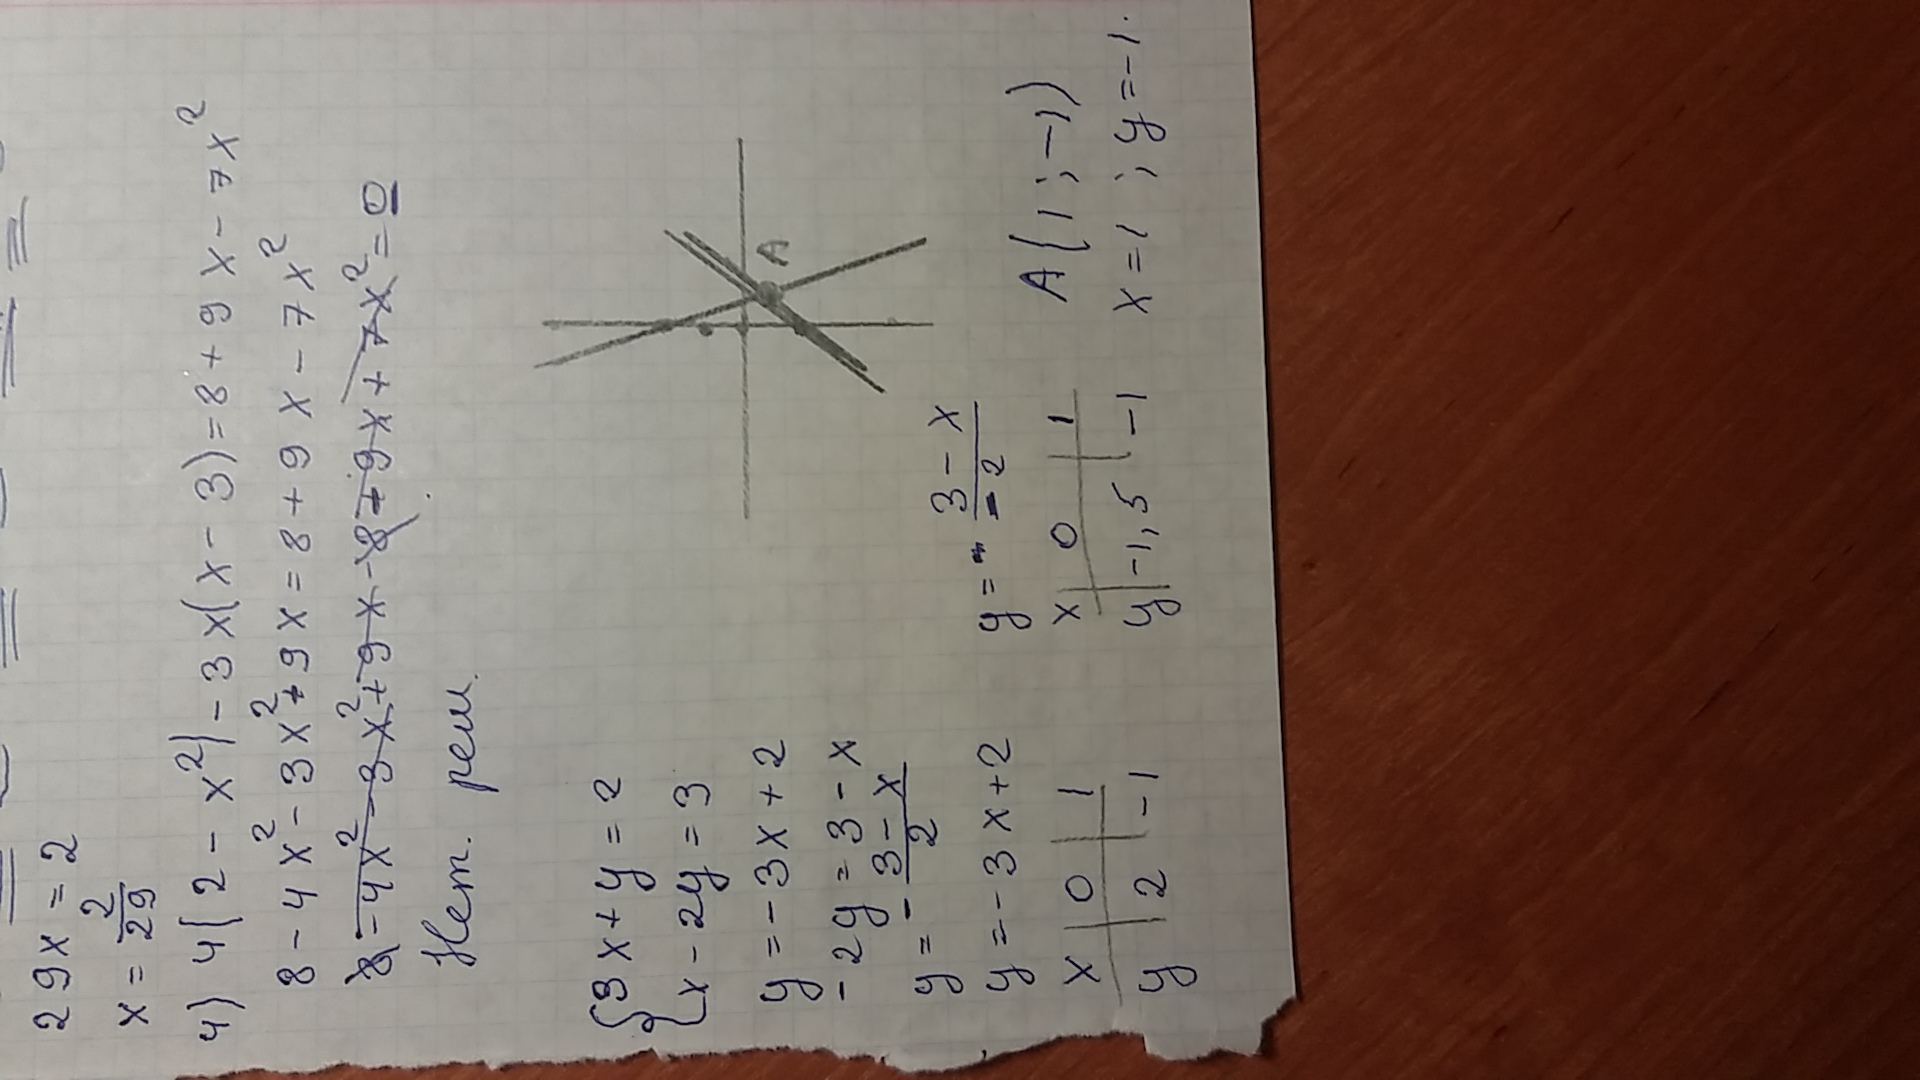 29x = 2
x = 2/29
4) 4(2 - x²) - 3x(x - 3) = 8 + 9x - 7x²
8 - 4x² - 3x² + 9x = 8 + 9x - 7x²
8 - 4x² - 3x² + 9x - 8 + 9x + 7x² = 0
Нет. реш.
{3x + y = 2
x - 2y = 3
A
y = -3x + 2
-2y = 3 - x
y = - 3 - x / 2
y = -3x + 2
x | 0 | 1
y | 2 | -1
y = 3 - x / -2
x | 0 | 1
y | -1,5 | -1
A(1; -1)
x = 1; y = -1.